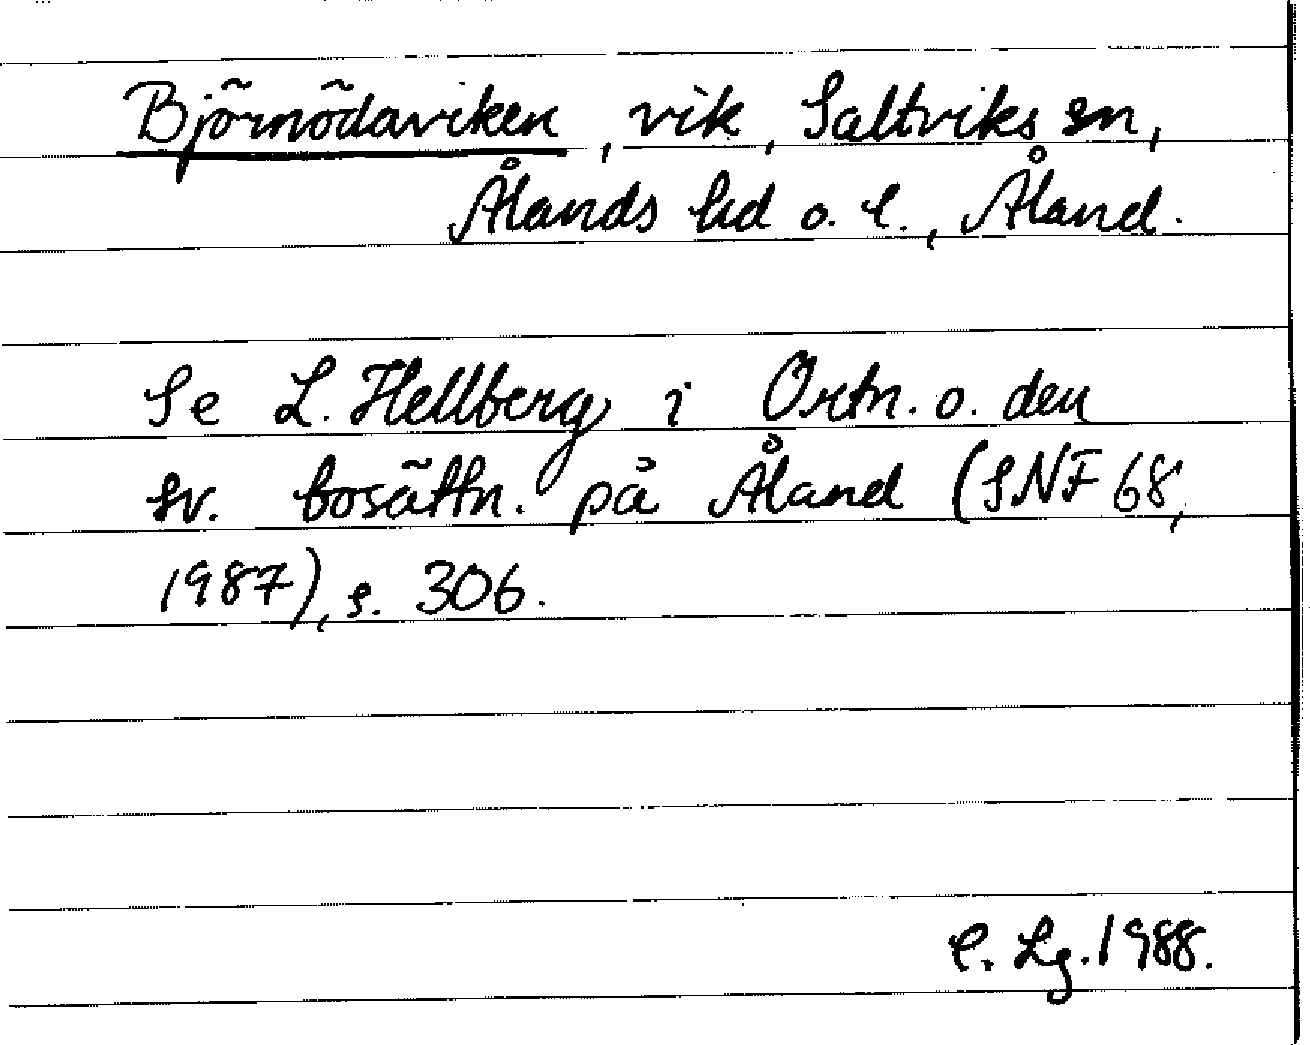 Björnödaviken, vik, Saltviks sn,
Ålands hd o. l., Åland.
Se L. Hellberg i Ortn. o. den
sv. bosättn. på Åland (SNF 68,
1987), s. 306.
C. Lg. 1988.